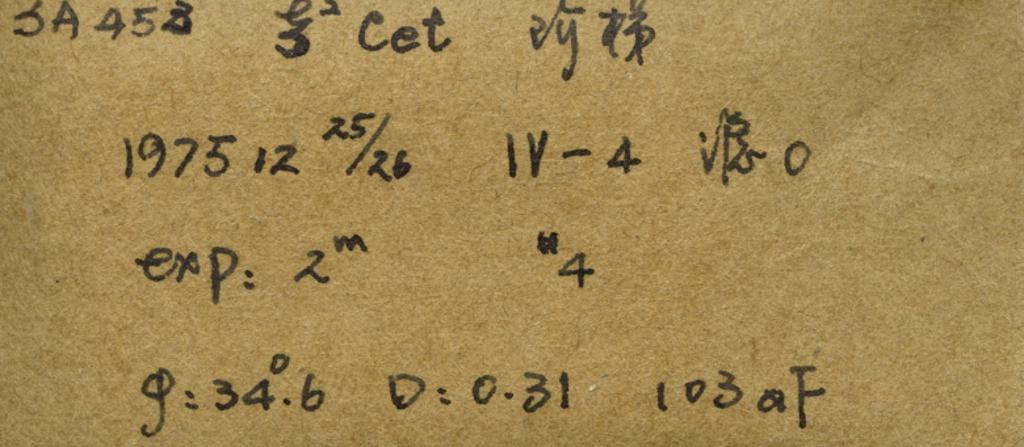 SA 453 ξ² Cet 阶梯
1975 12 25/26 IV-4 滤 0
exp: 2ᵐ #4
φ: 34°.6 D: 0.31 103aF